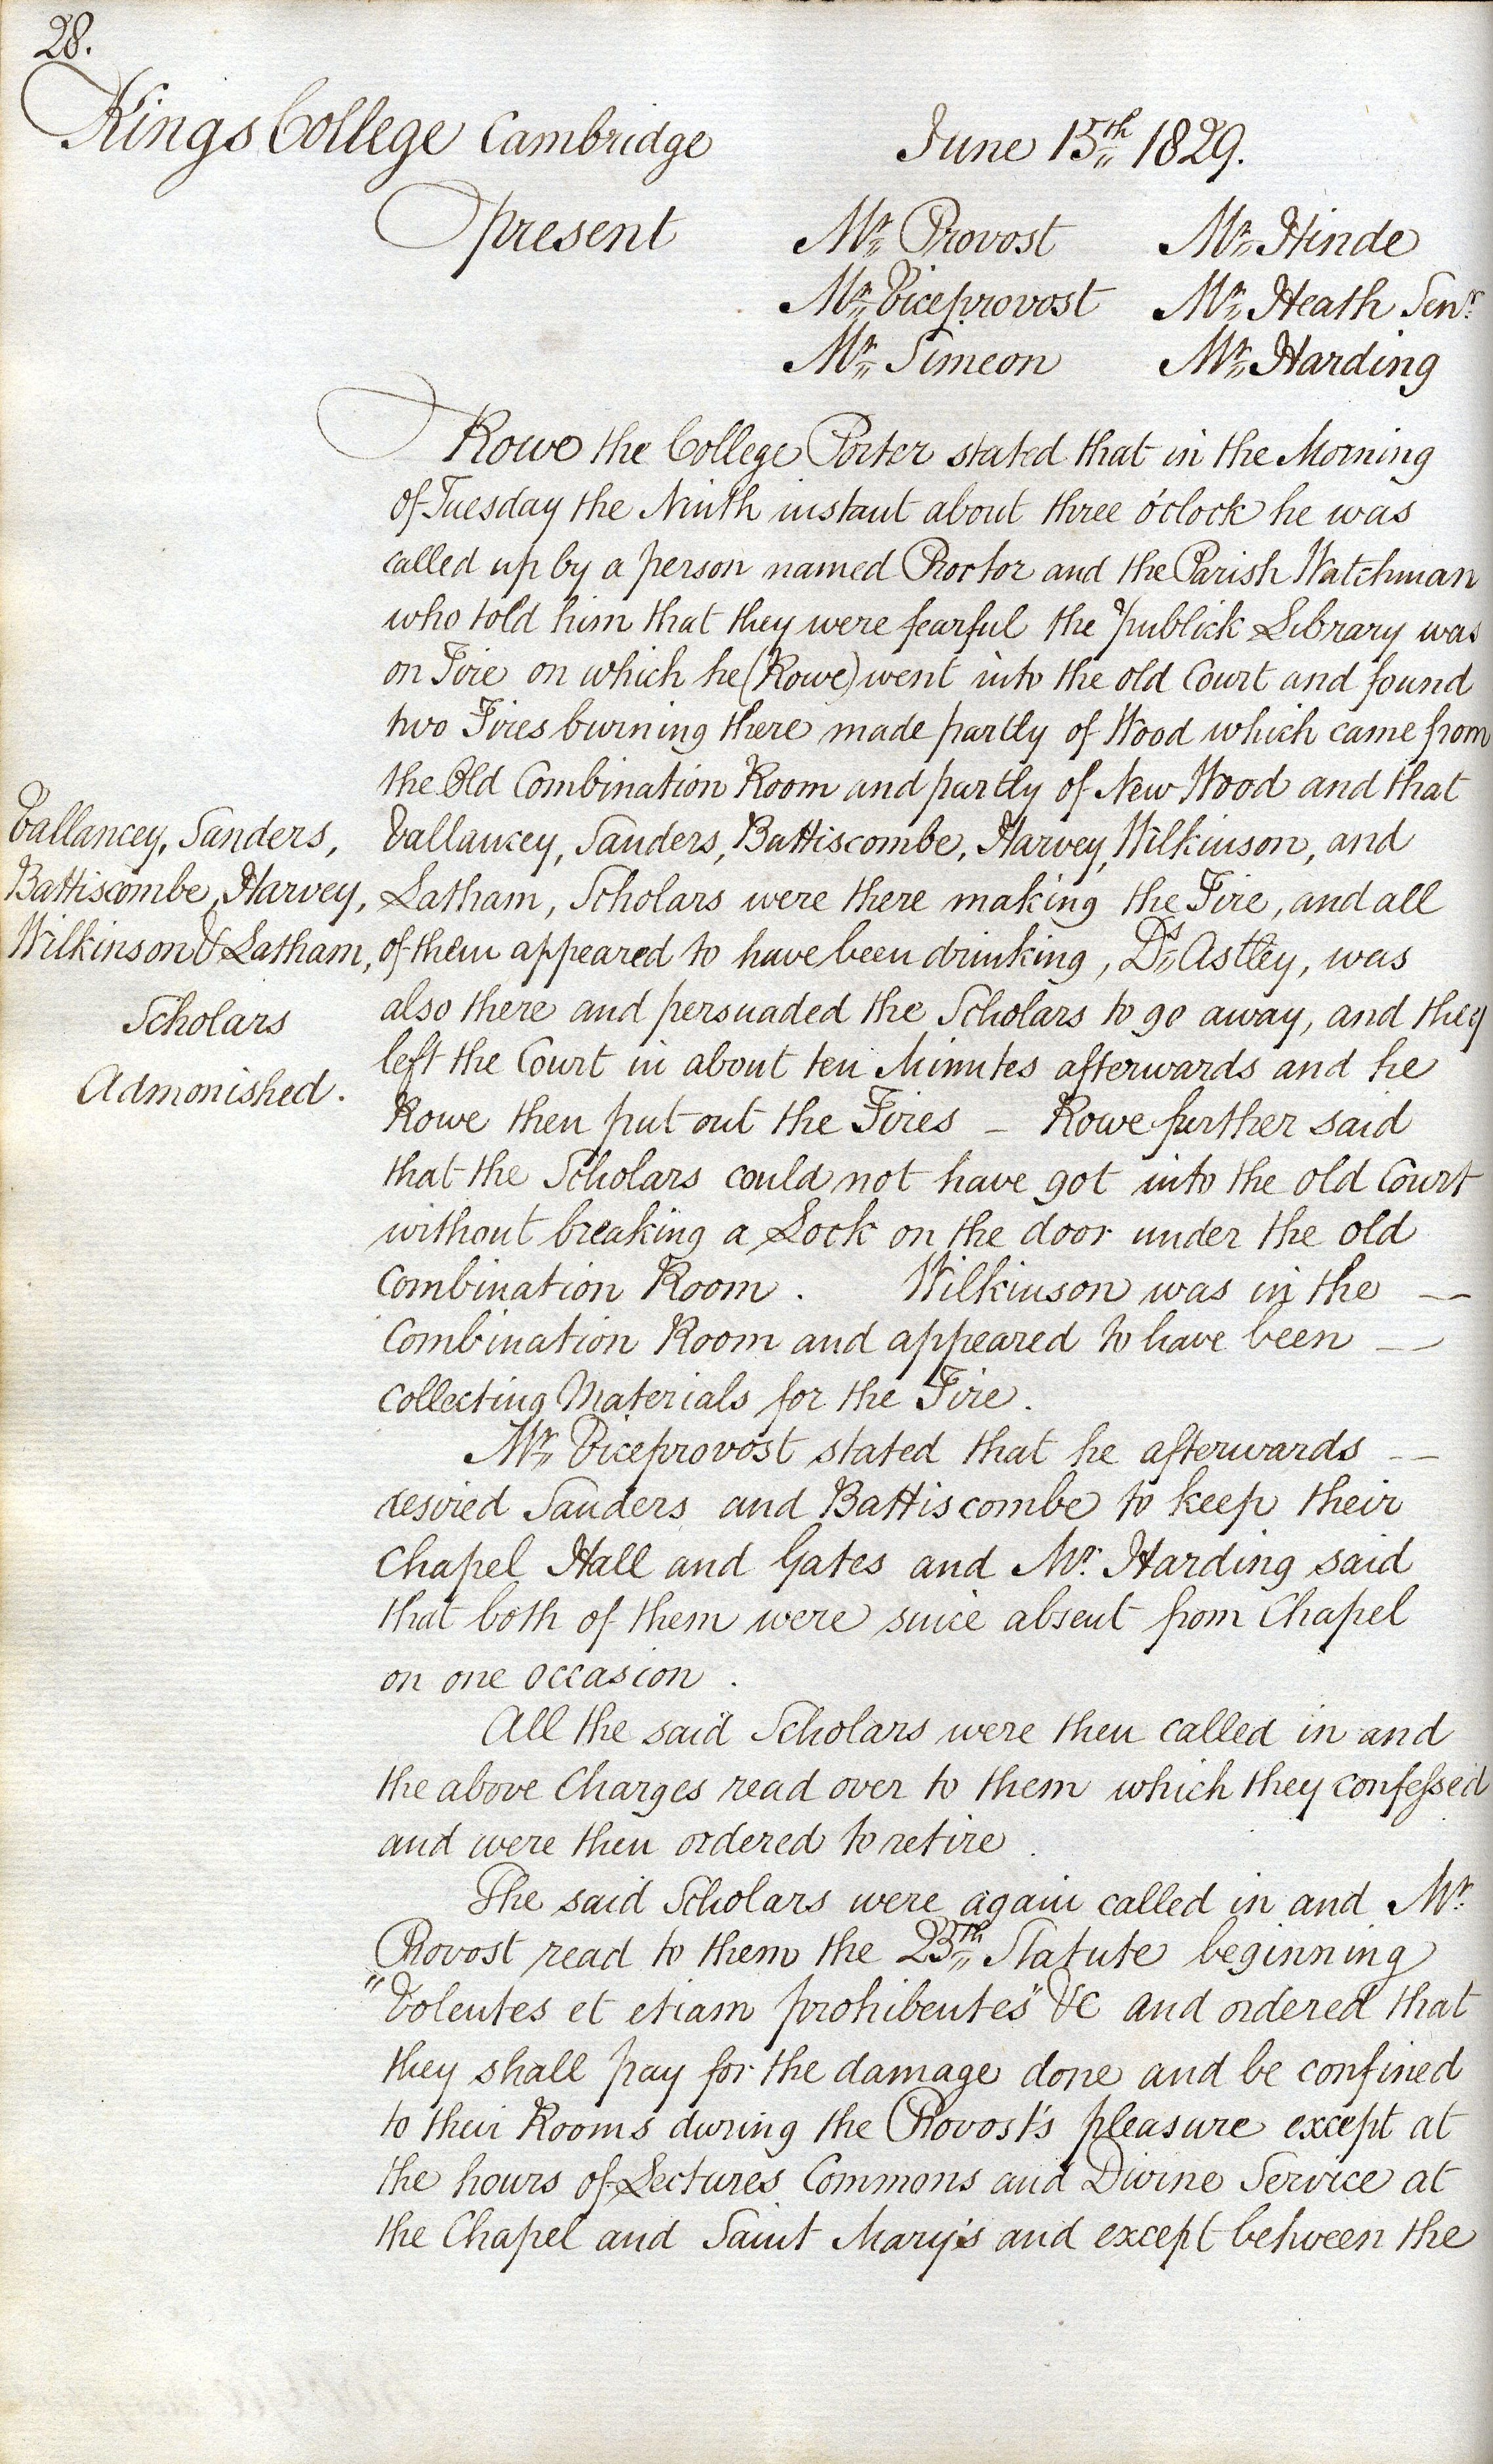 28.
Kings College Cambridge June 15th 1829.
present Mr Provost Mr Hinde
Mr Viceprovost Mr Heath Senr.
Mr Simeon Mr Harding
Rowe the College Porter stated that in the Morning
of Tuesday the Ninth instant about three o'clock he was
called up by a person named Proctor and the Parish Watchman
who told him that they were fearful the publick Library was
on Fire on which he (Rowe) went into the old Court and found
two Fires burning there made partly of Wood which came from
the Old Combination Room and partly of New Wood and that
Vallancey, Sanders, Battiscombe, Harvey, Wilkinson, and
Latham, Scholars were there making the Fire, and all
of them appeared to have been drinking, Ds Astley, was
also there and persuaded the Scholars to go away, and they
left the Court in about ten Minutes afterwards and he
Rowe then put out the Fires – Rowe further said
that the Scholars could not have got into the old Court
without breaking a Lock on the door under the old
Combination Room. Wilkinson was in the —
Combination Room and appeared to have been —
collecting Materials for the Fire.
Vallancey, Sanders,
Battiscombe, Harvey,
Wilkinson & Latham,
Scholars
Admonished.
Mr Viceprovost stated that he afterwards —
desired Sanders and Battiscombe to keep their
Chapel Hall and Gates and Mr. Harding said
that both of them were since absent from Chapel
on one occasion.
All the said Scholars were then called in and
the above Charges read over to them which they confessed
and were then ordered to retire.
The said Scholars were again called in and Mr.
Provost read to them the 23th Statute beginning
"Volentes et etiam prohibentes" &c and ordered that
they shall pay for the damage done and be confined
to their Rooms during the Provost's pleasure except at
the hours of Lectures Commons and Divine Service at
the Chapel and Saint Mary's and except between the